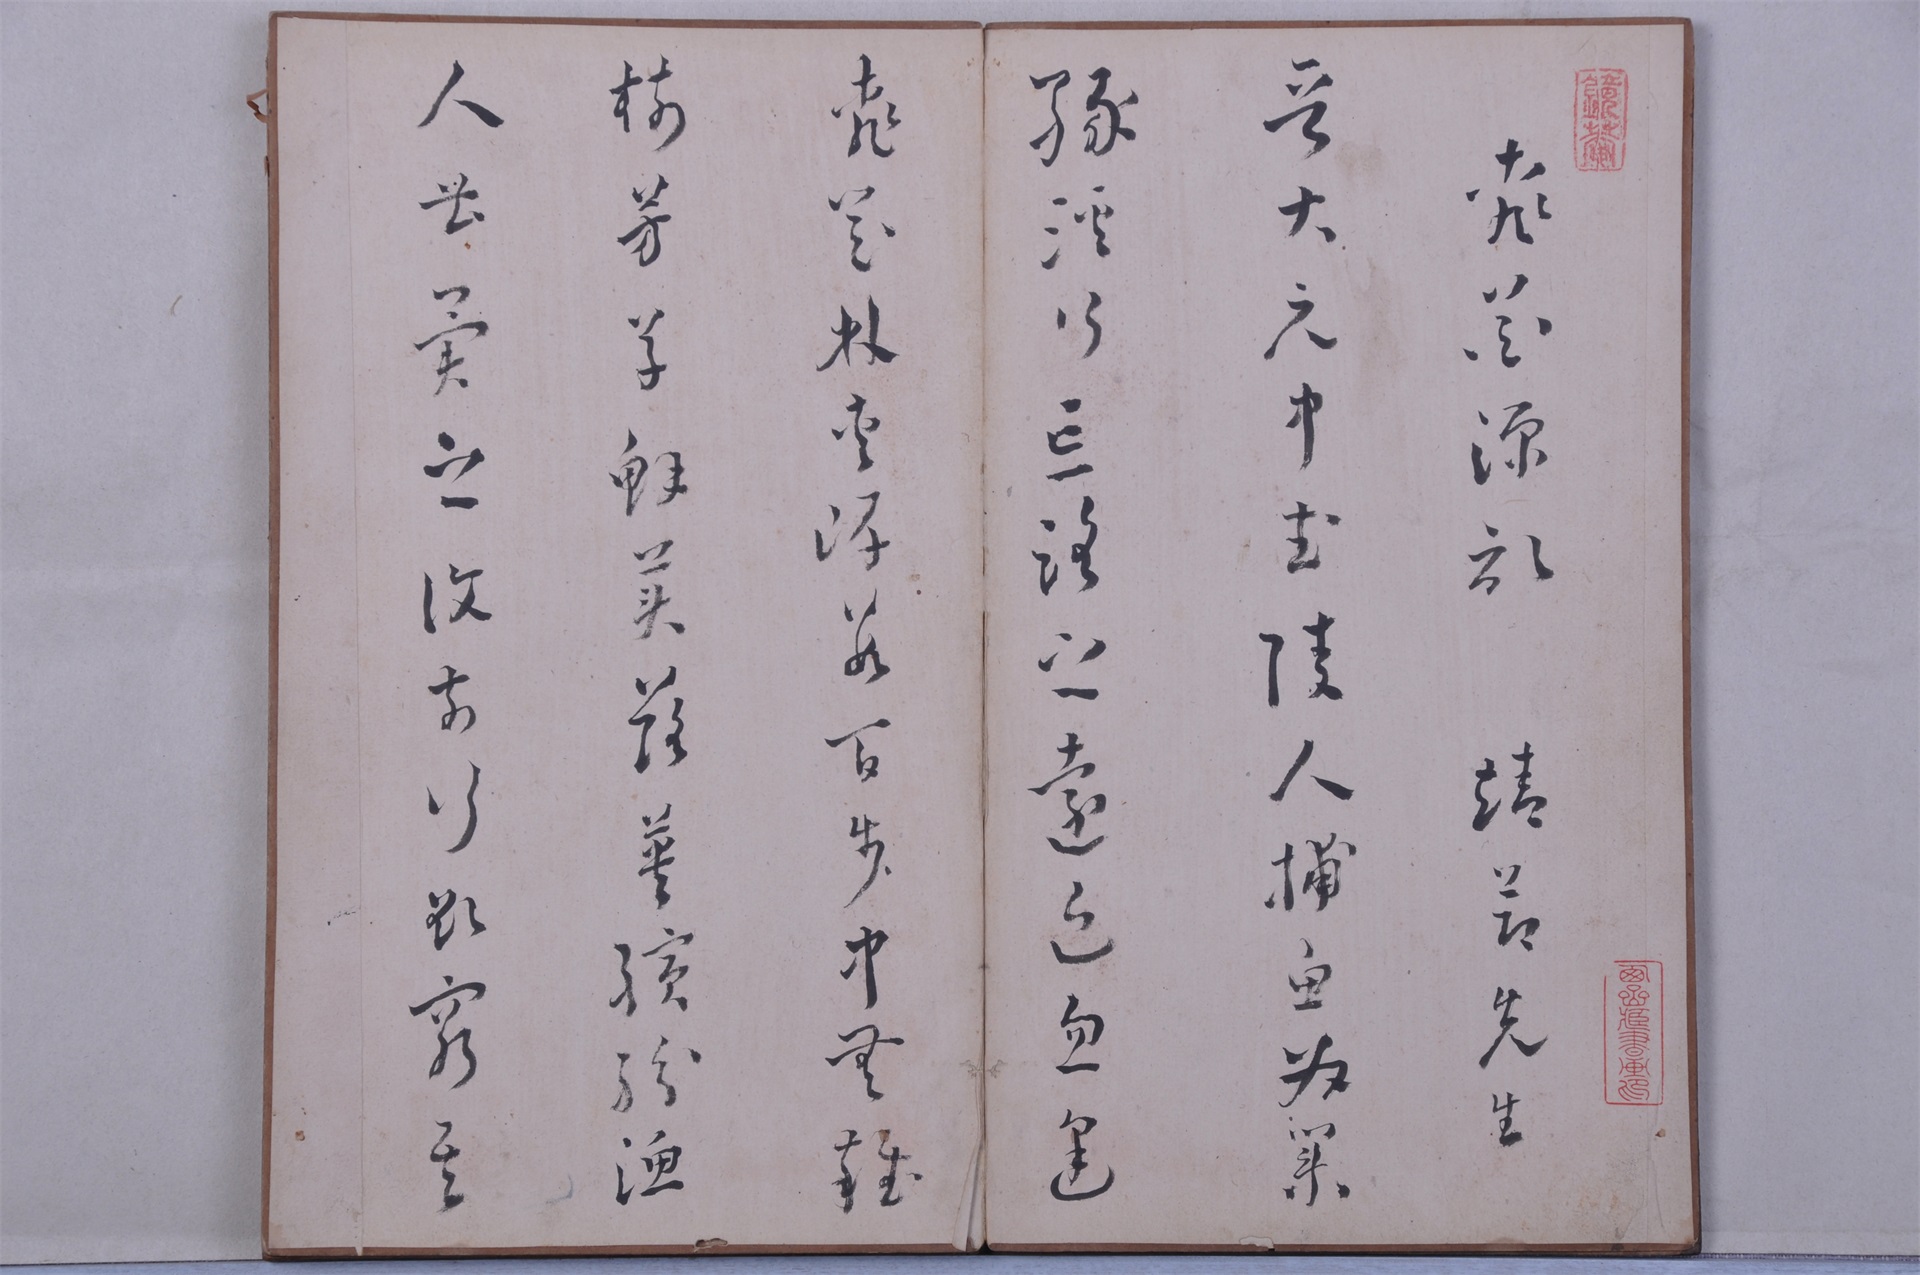 桃花源記 靖節先生
晉大元中武陵人捕魚為業
緣溪行忘路之遠近忽逢
桃花林夾岸數百步中無雜
樹芳草鮮美落英繽紛漁
人甚異之復前行欲窮其